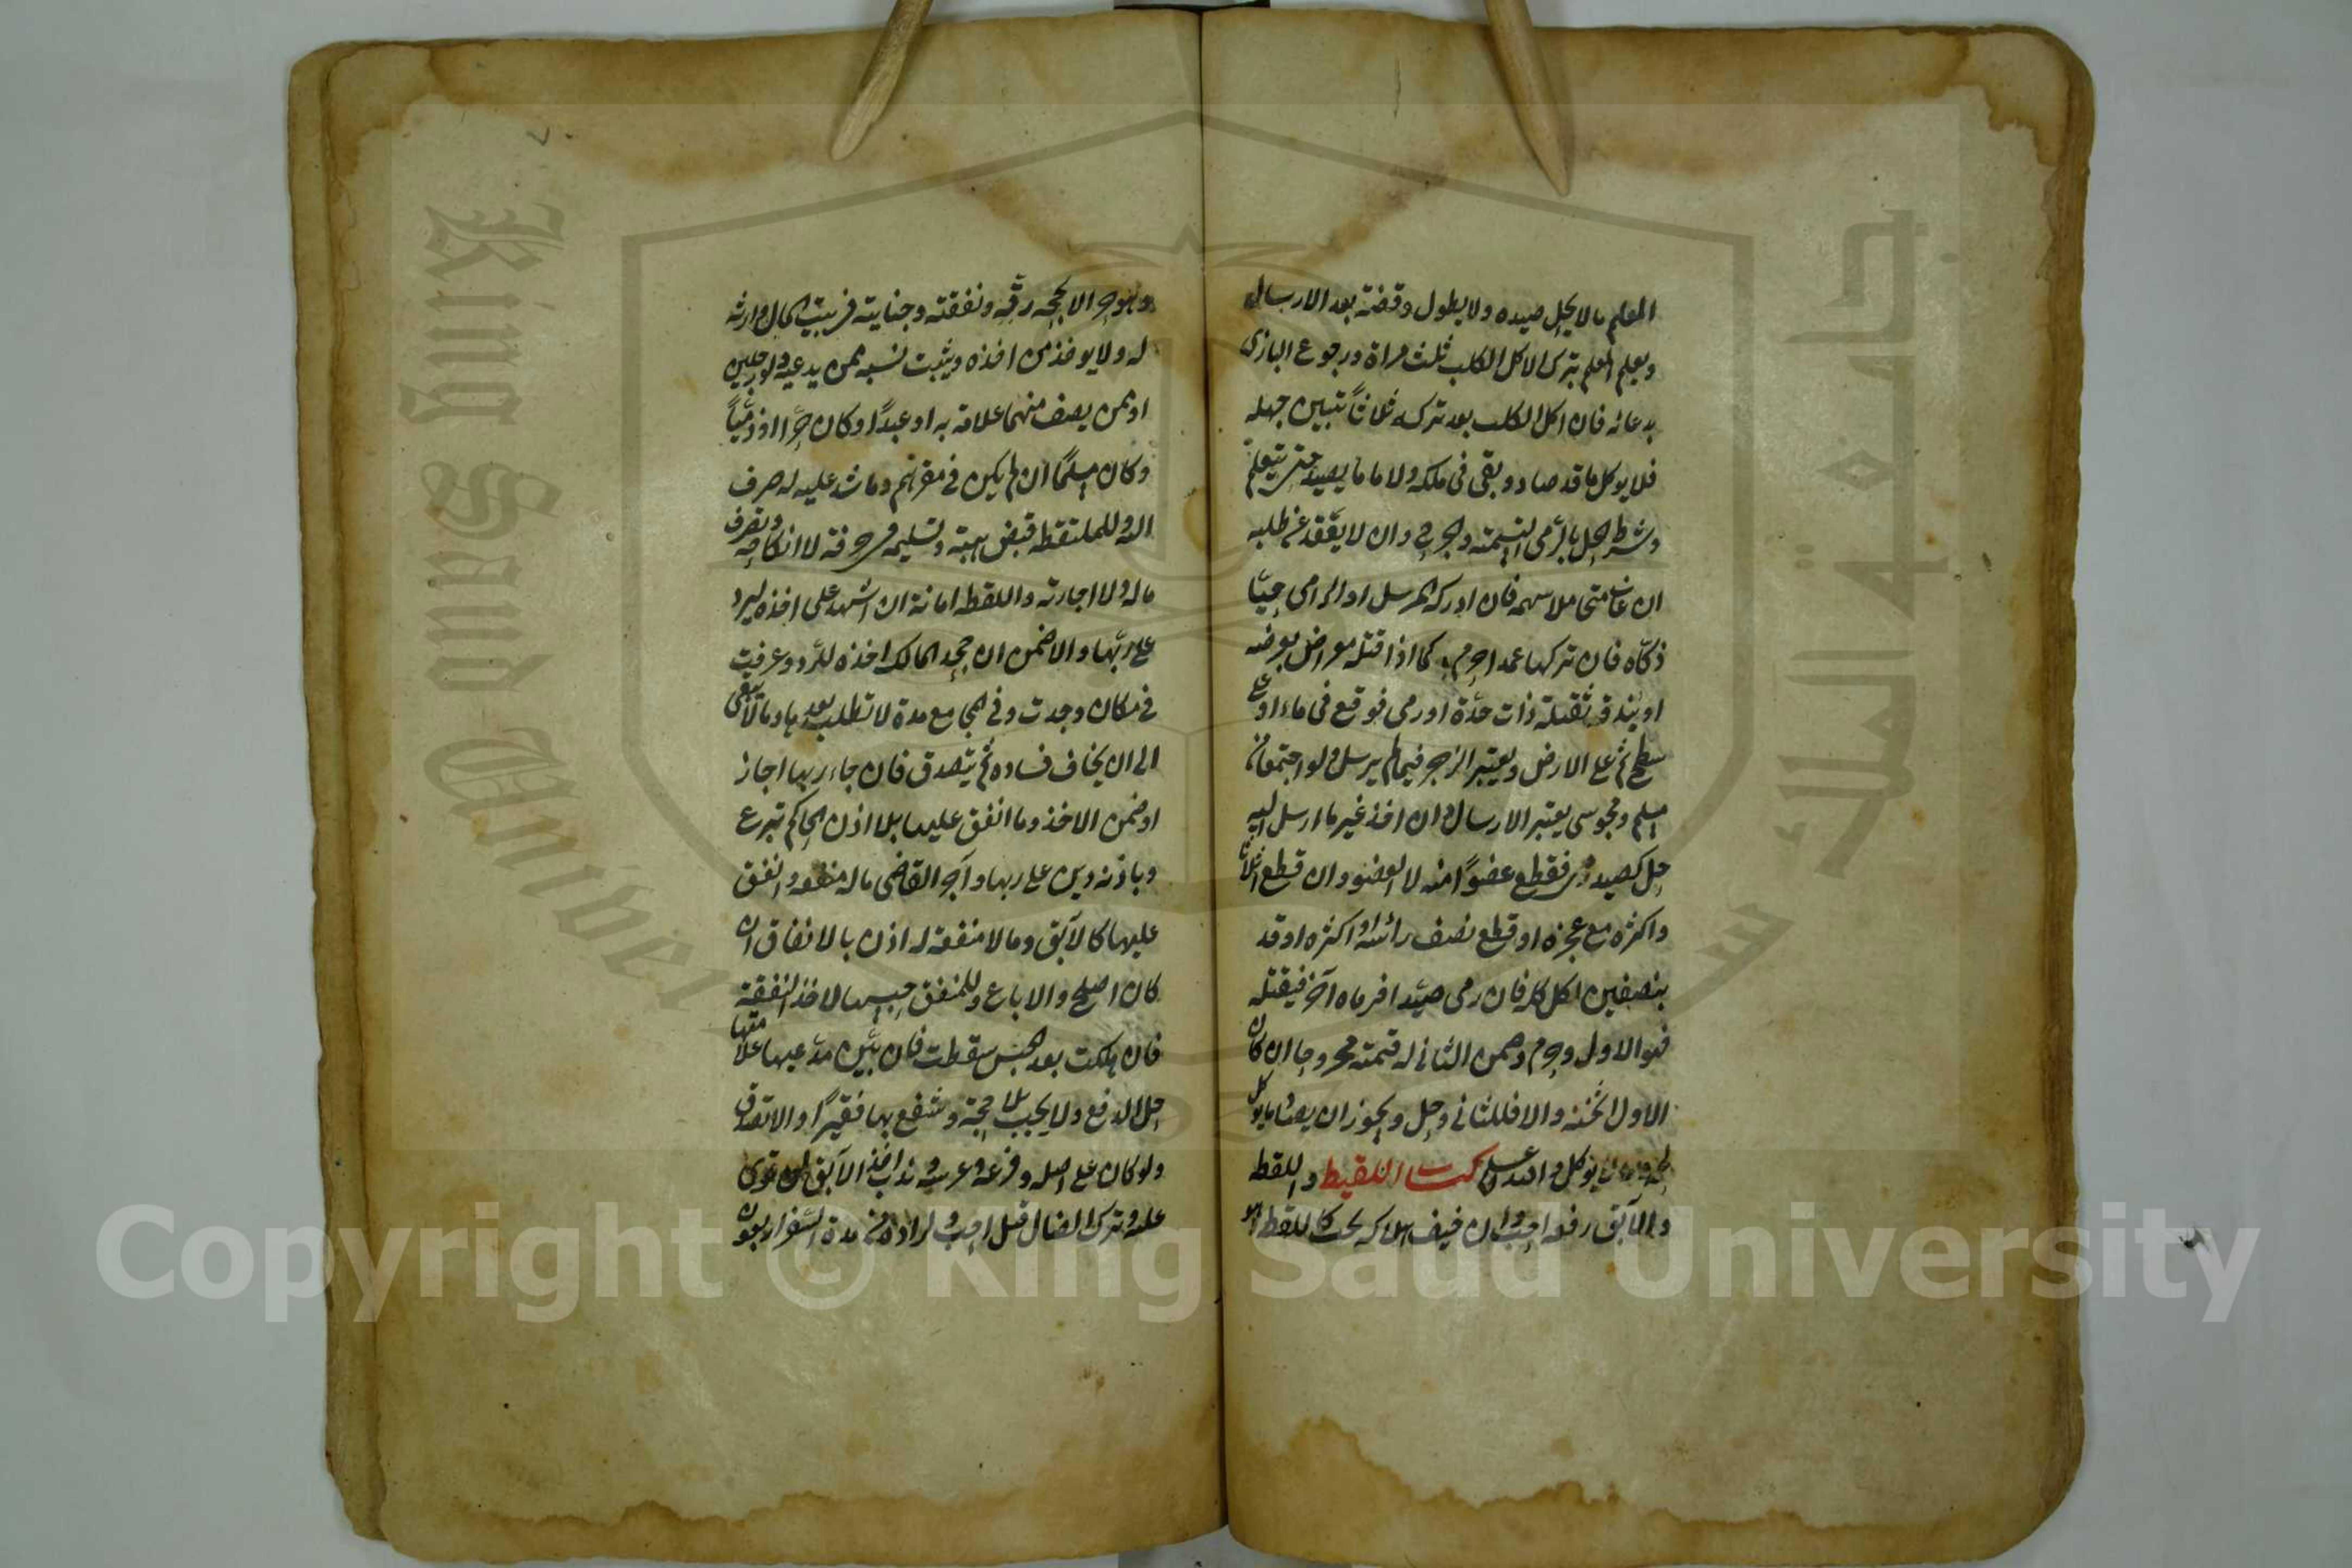 المعلم مالا يحل صيده ولا يطول وقفته بعد الارسال
ويعلم المعلم بترك الاكل الكلب ثلث مراة ورجوع البازى
بدعائه فان اكل الكلب بعد تركه ثلاثاً تبين جهله
فلا يوكل ما قد صاد وبقى فى ملكه ولا ما يصيد حتى يتعلم
وشرط الحل بالرمى التسمية والجرح وان لا يقعد عن طلبه
ان غاب متحاملا سهمه فان ادركه المرسل او الرامى حيّا
ذكّاه فان تركها عمدا حرم كما اذا قتله معراض بعرضه
او بندقة ثقيلة ذات حدّة او رمى فوقع فى ماء او على
سطح ثم على الارض ويعتبر الزجر فيما لم يرسل ولو اجتمعا من
مسلم ومجوسى يعتبر الارسال وان اخذ غير ما ارسل اليه
حل كصيد رمى فقطع عضوًا منه لا العضو وان قطع اثلاثا
واكثره مع عجزه او قطع نصف رائسه او اكثره او قد
بنصفين اكل كله فان رمى صيدا فرماه آخر فقتله
فهو الاول وحرم وضمن الثانى له قيمته مجروحا ان كان
الاول اثخنه والا فللثانى وحل ويجوز ان يصاد ما يوكل
لحمه وما لا يوكل والله اعلم كتاب اللقيط واللقطة
والآبق رفعه احب وان خيف هلاكه يجب كاللقطة
وهو حر الا بحجة رقه ونفقته وجنايته فى بيت المال وارثه
له ولا يوخذ من اخذه ويثبت نسبه ممن يدعيه ولو رجلين
او ممن يصف منهما علامة به او عبدًا وكان حرًّا او ذميّاً
وكان مسلمًا ان لم يكن فى مقرهم وما شد عليه له صرف
اليه وللملتقط قبض هبته وتسليمه فى حرفة لا انكاحه وتصرف
ماله ولا اجارته واللقطة امانة ان اشهد على اخذه ليرد
على ربّها والا ضمن ان جحد المالك اخذه للرّد وعرفت
فى مكان وجدت وفى المجامع مدة لا تطلب بعدها وما لا يبقى
الى ان يخاف فساده ثم يتصدق فان جاء ربها اجاز
او ضمن الاخذ وما انفق عليها بلا اذن الحاكم تبرع
وباذنه دين على ربها وآجر القاضى ماله منفعة وانفق
عليها كالآبق وما لا منفعة له اذن بالانفاق ان
كان اصلح والا باع وللمنفق حبسها لاخذ النفقة
فان هلكت بعد الحبس سقطت فان بيّن مدّعيها علامتها
حل الدفع ولا يجب بلا حجة وينتفع بها فقيرًا والا تصدق
ولو كان على اصله وفرعه وعرسه وندب اخذ الآبق لمن قوى
عليه وترك الضال قيل احب ولراده من مدة السفر اربعون